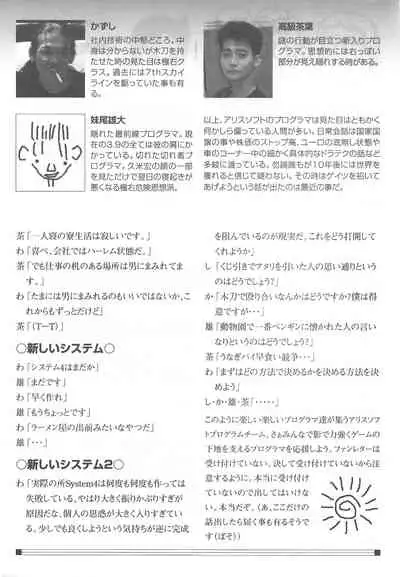 かずし
社内技術の中堅どころ。中
身は分からないが木刀を持
たせた時の見た目は極右ク
ラス。過去には7thスカイ
ラインを駆っていた事も有
る。
高級茶葉
謎の行動が目立つ新入りプロ
グラマ。思想的には右っぽい
部分が見え隠れする時がある。
妹尾雄大
隠れた最前線プログラマ。現
在の3.9の全ては彼の肩にか
かっている。切れた切れ者プ
ログラマ。久米宏の顔の一部
を見ただけで翌日の寝起きが
悪くなる極右危険思想派。
以上、アリスソフトのプログラマは見た目はともかく
何かしら偏っている人間が多い。日常会話は国家国
旗の事や株価のストップ高、ユーロの底無し状態や
車のコーナー中の細かく具体的なドラテクの話など
多岐に渡っている。勿論誰もが10年後には世界を
獲れると信じて疑わない。その時はゲイツを招いて
あげようという話が出たのは最近の事だ。
茶「一人寝の寮生活は寂しいです。」
わ「喜べ、会社ではハーレム状態だ。」
茶「でも仕事の机のある場所は男にまみれてま
す。」
わ「たまには男にまみれるのもいいではないか、こ
れからもずっとだけど」
茶「（T―T）」
○新しいシステム○
わ「システム4はまだか」
雄「まだです」
わ「早く作れ」
雄「もうちょっとです」
わ「ラーメン屋の出前みたいなやつだ」
雄「・・・」
○新しいシステム2○
わ「実際の所System4は何度も何度も作っては
失敗している。やはり大きく振りかぶりすぎが
原因だな、個人の思惑が大きく入りすぎてい
る。少しでも良くしようという気持ちが逆に完成
を阻んでいるのが現実だ。これをどう打開して
くれようか」
し「くじ引きでアタリを引いた人の思い通りという
のはどうでしょう？」
か「木刀で殴り合いなんかはどうですか？僕は得
意ですが・・・」
雄「動物園で一番ペンギンに懐かれた人の言い
なりというのはどうでしょう？」
茶「うなぎパイ早食い競争・・・」
わ「まずはどの方法で決めるかを決める方法を決
めよう」
し・か・雄・茶「・・・・・」
このように楽しい楽しいプログラマ達が集うアリスソフ
トプログラムチーム。さぁみんなで影で力強くゲームの
下地を支えるプログラマを応援しよう。ファンレターは
受け付けていない、決して受け付けていないから注
意するように。本当に受け付け
ていないので出してはいけな
い。本当だぞ。（あ、ここだけの
話出したら届く事も有るそうで
す（ぼそ））